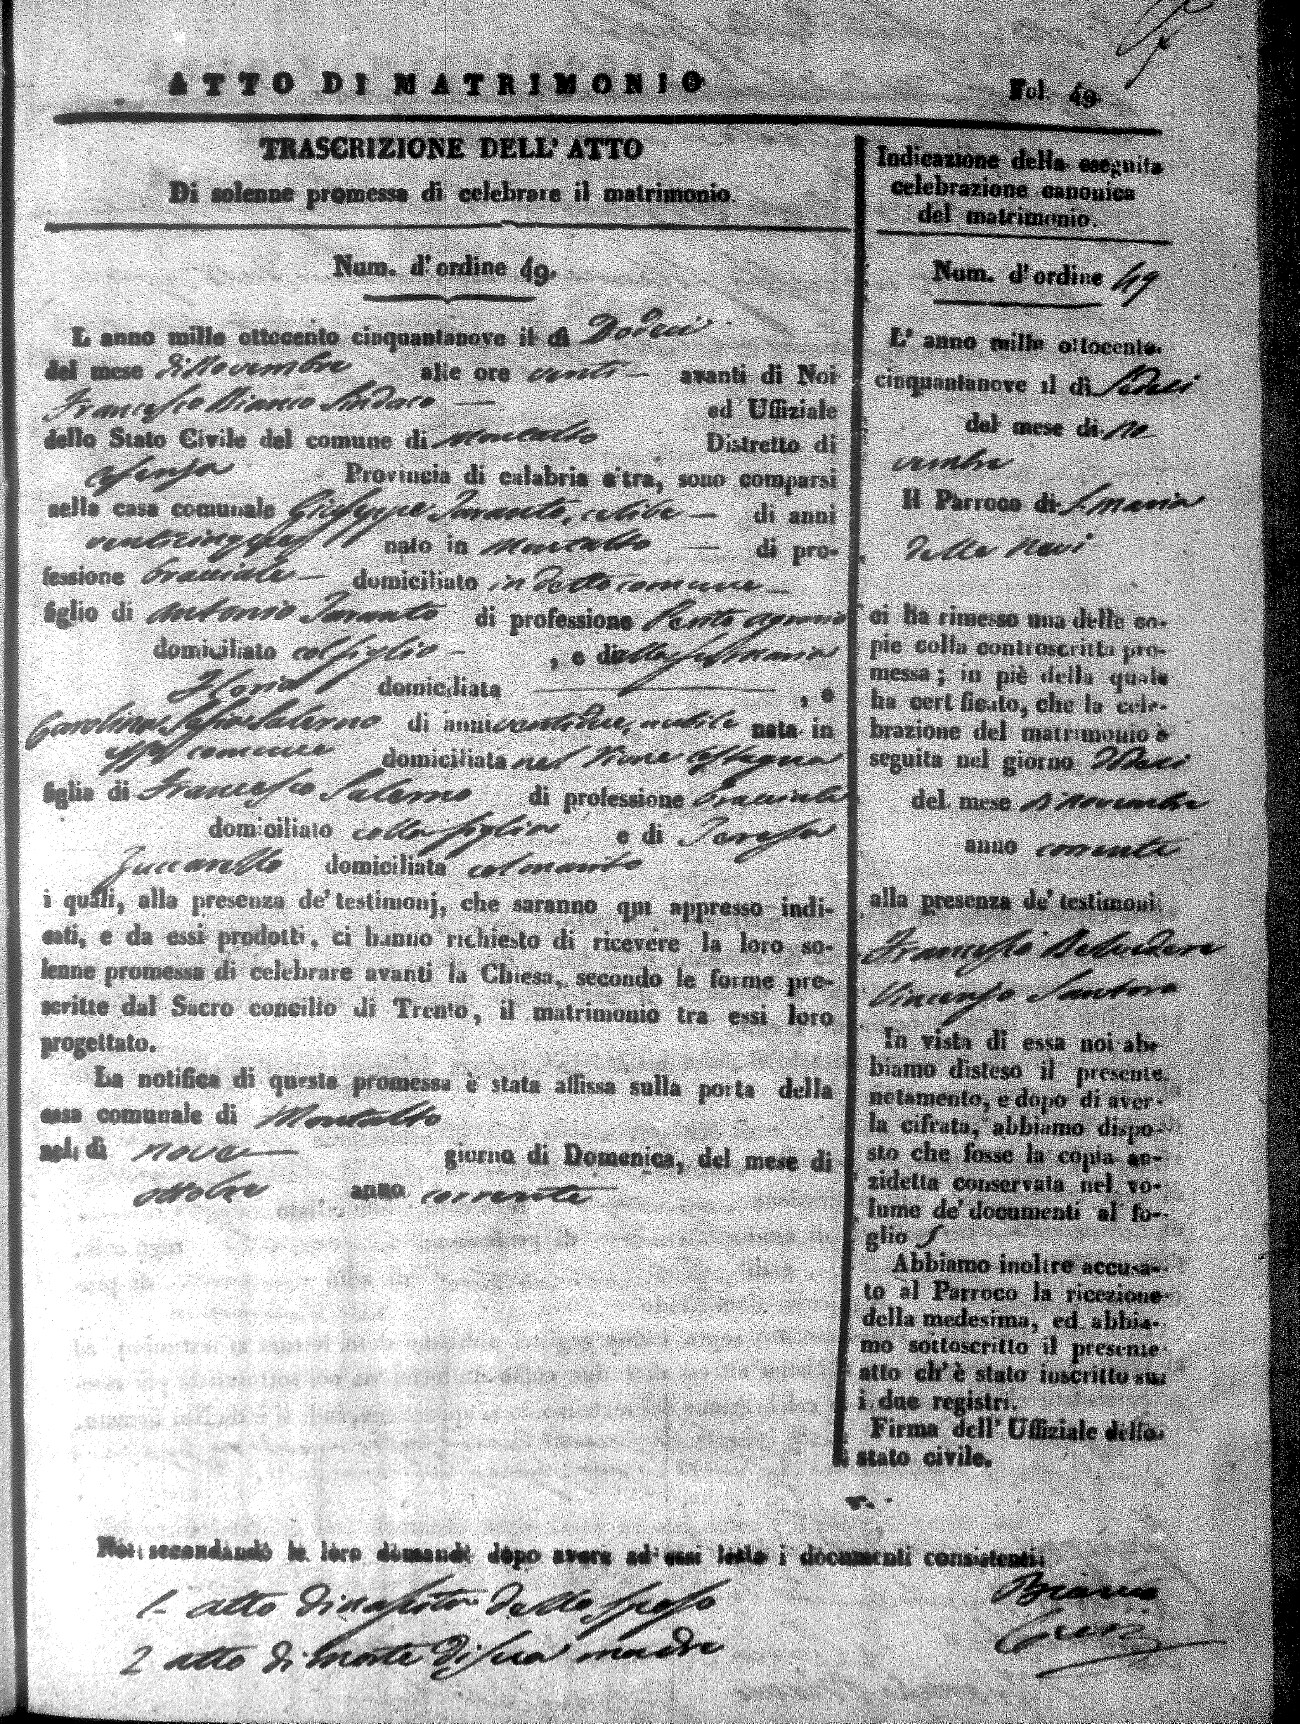 ATTO DI MATRIMONIO
Fol. 49.
TRASCRIZIONE DELL' ATTO
Di solenne promessa di celebrare il matrimonio.
Num. d' ordine 49.
L anno mille ottocento cinquantanove il dì Dodeci
del mese di Novembre alle ore venti avanti di Noi
Francesco Bianco Sindaco ed Uffiziale
dello Stato Civile del comune di Montalto Distretto di
Cosenza Provincia di calabria citra, sono comparsi
nella casa comunale Giuseppe Taranto, celibe di anni
venticinque nato in Montalto di pro-
fessione bracciale domiciliato in detto comune
figlio di Antonio Taranto di professione
domiciliato col figlio , e di
Floria domiciliata , e
Carolina Salerno di anni ventidue, nubile nata in
comune domiciliata nel
figlia di Francesco Salerno di professione bracciale
domiciliato colla figlia e di Teresa
Zuccarello domiciliata col marito
i quali, alla presenza de' testimonj, che saranno qui appresso indi-
cati, e da essi prodotti, ci hanno richiesto di ricevere la loro so-
lenne promessa di celebrare avanti la Chiesa, secondo le forme pre-
scritte dal Sacro concilio di Trento, il matrimonio tra essi loro
progettato.
La notifica di questa promessa è stata affissa sulla porta della
casa comunale di Montalto
nel dì nove giorno di Domenica, del mese di
ottobre anno corrente
Noi secondando le loro domande dopo avere ad essi letto i documenti consistenti
1- atto di nascita dello sposo
2 atto di morte di sua madre
Indicazione della eseguita
celebrazione canonica
del matrimonio.
Num. d' ordine 49
L' anno mille ottocento-
cinquantanove il dì Sedeci
del mese di No
vembre
Il Parroco di S. Maria
della Nevi
ci ha rimesso una delle co-
pie colla controscritta pro-
messa; in piè della quale
ha certificato, che la cele-
brazione del matrimonio è
seguita nel giorno
del mese di novembre
anno corrente
alla presenza de' testimoni
Francesco Belvedere
Vincenzo Santoro
In vista di essa noi ab-
biamo disteso il presente
notamento, e dopo di aver-
la cifrata, abbiamo dispo-
sto che fosse la copia an-
zidetta conservata nel vo-
lume de' documenti al fo-
glio
Abbiamo inoltre accusa-
to al Parroco la ricezione
della medesima, ed abbia-
mo sottoscritto il presente
atto ch' è stato inscritto su
i due registri.
Firma dell' Uffiziale dello
stato civile.
Bianco